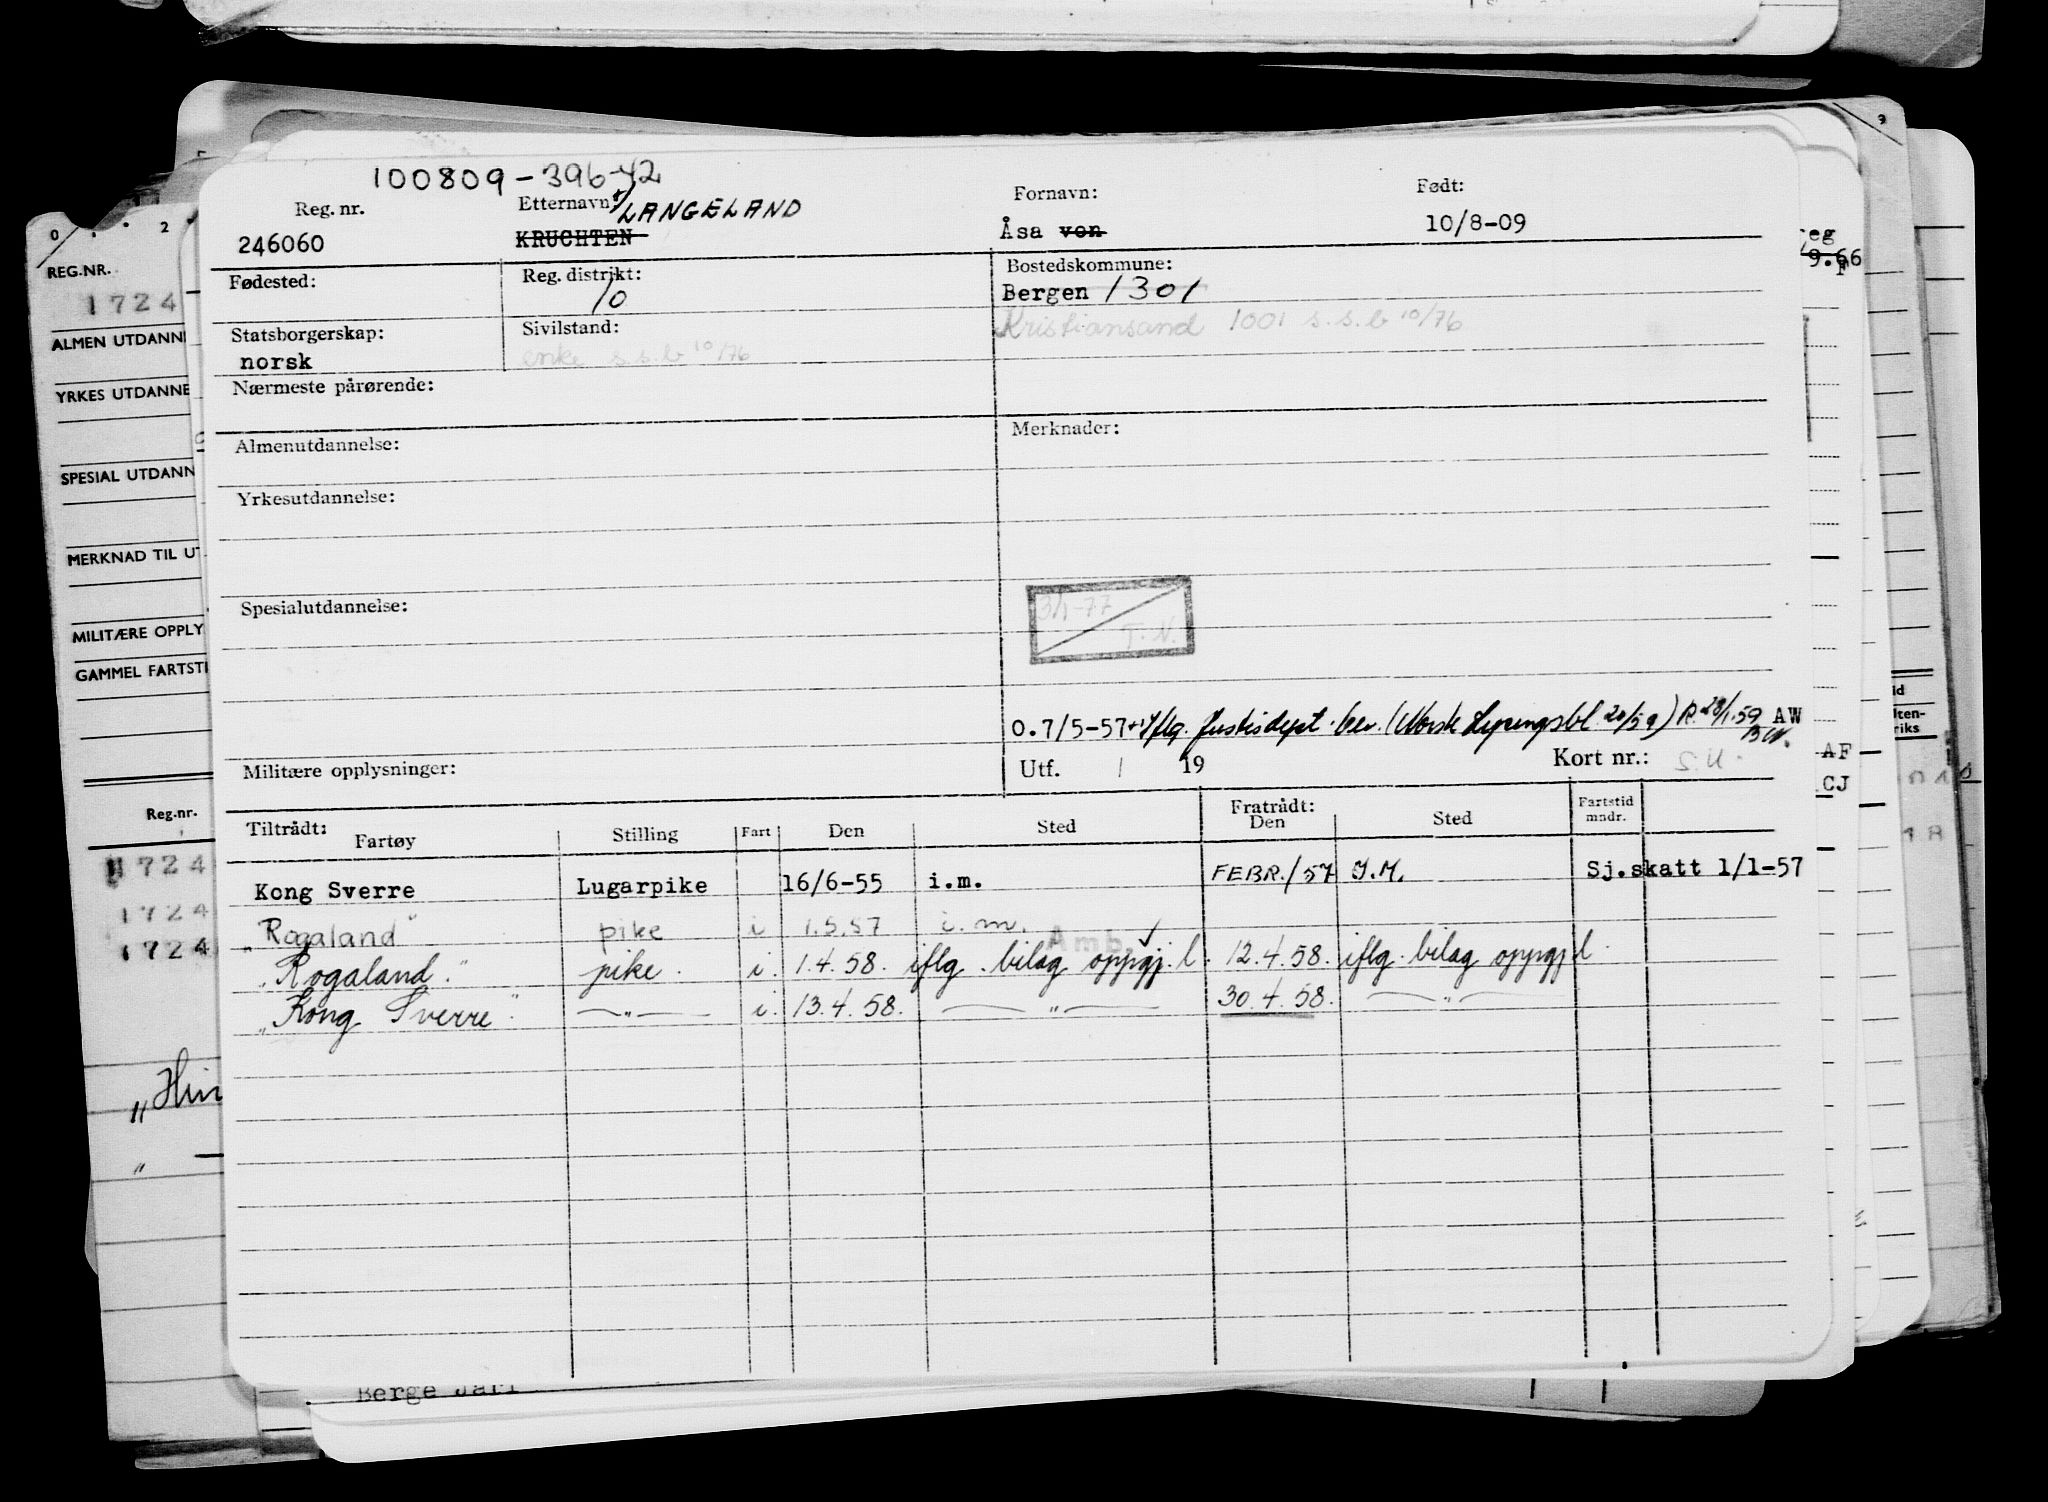 100809-396-42
Reg. nr. Etternavn: Fornavn: Født:
246060 KRUCHTEN LANGELAND Åsa von 10/8-09
Fødested: Reg. distrikt: Bostedskommune:
10 Bergen 1301
Statsborgerskap: Sivilstand: Kristiansand 1001 s.s.b 10/76
norsk enke s.s.b 10/76
Nærmeste pårørende:
Almenutdannelse: Merknader:
Yrkesutdannelse:
Spesialutdannelse:
3/1-77
T.N.
O.7/5-57 +) Iflg. Justisdept. bev. (Norsk Lysningsbl. 20/59) 28/1.59 AW
Militære opplysninger: Utf. / 19 Kort nr.: S.U.
Tiltrådt: Fratrådt:
Fartøy Stilling Fart Den Sted Den Sted Fartstid mndr.
Kong Sverre Lugarpike 16/6-55 i.m. FEBR./57 I.M. Sj.skatt 1/1-57
"Rogaland" pike i 1.5.57 i.m. Amb. ✓
"Rogaland." pike. i. 1.4.58. iflg. bilag oppgj. l. 12.4.58. iflg. bilag oppgj. l
"Kong Sverre" —"— i. 13.4.58. —"— 30.4.58. —"—
REG.NR.
1724
ALMEN UTDANNE
YRKES UTDANNE
SPESIAL UTDANN
MERKNAD TIL UT
MILITÆRE OPPLY
GAMMEL FARTSTI
Reg.nr.
1724
1724
1724
"Hin
" —
Berge Jarl
eg
9.66
F
AF
CJ
riks
9